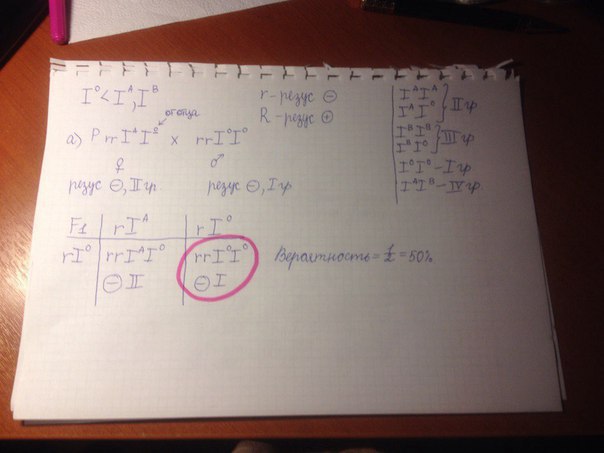 I⁰ < Iᴬ, Iᴮ
r - резус ⊖
R - резус ⊕
IᴬIᴬ
IᴬI⁰ } II гр
IᴮIᴮ
IᴮI⁰ } III гр
I⁰I⁰ - I гр
IᴬIᴮ - IV гр.
от отца
а) P rr IᴬI⁰ x rr I⁰I⁰
♀ ♂
резус ⊖, II гр резус ⊖, I гр
F1 rIᴬ rI⁰
rI⁰ rrIᴬI⁰ rrI⁰I⁰
⊖ II ⊖ I
Вероятность = 1/2 = 50%